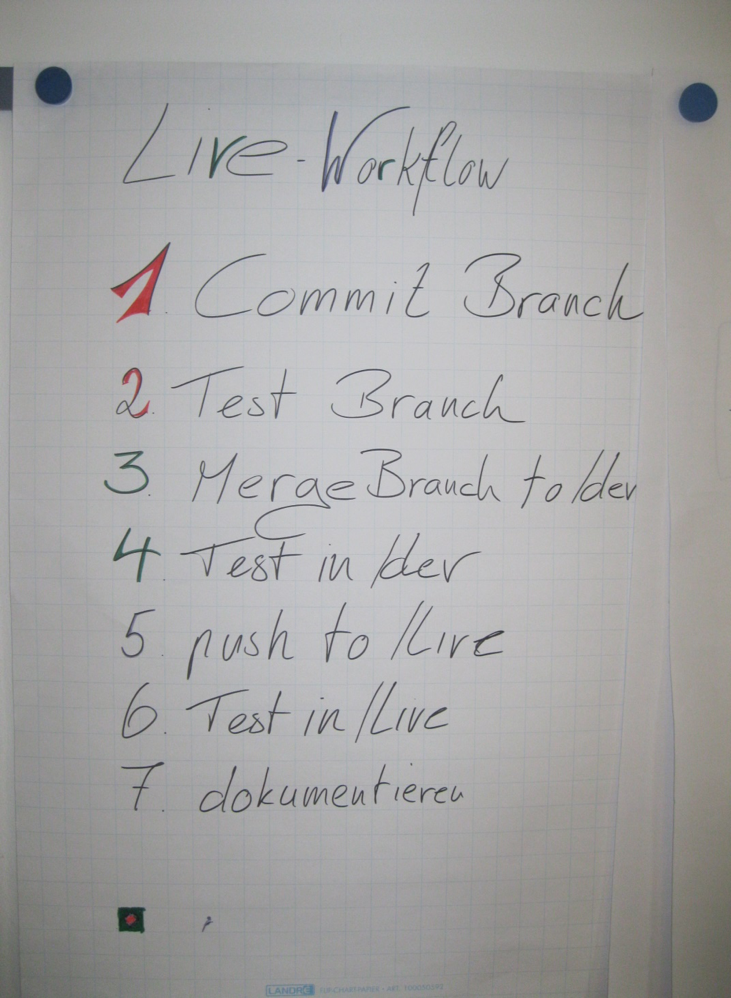 Live-Workflow
1. Commit Branch
2. Test Branch
3. Merge Branch to /dev
4. Test in /dev
5. push to /Live
6. Test in /Live
7. dokumentieren
LANDRÉ